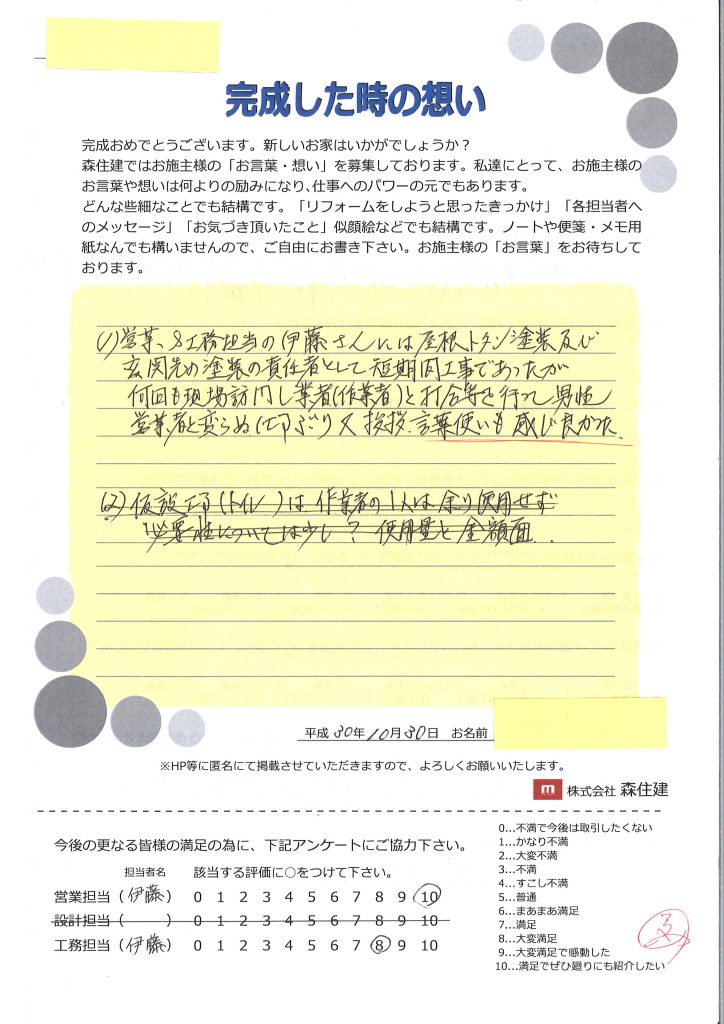 完成した時の想い
完成おめでとうございます。新しいお家はいかがでしょうか？
森住建ではお施主様の「お言葉・想い」を募集しております。私達にとって、お施主様の
お言葉や想いは何よりの励みになり、仕事へのパワーの元でもあります。
どんな些細なことでも結構です。「リフォームをしようと思ったきっかけ」「各担当者へ
のメッセージ」「お気づき頂いたこと」似顔絵などでも結構です。ノートや便箋・メモ用
紙なんでも構いませんので、ご自由にお書き下さい。お施主様の「お言葉」をお待ちして
おります。
(1)営業、&工務担当の伊藤さんには屋根トタン塗装及び
玄関先の塗装の責任者として短期間工事であったが
何回も現場訪問し業者(作業者)と打合等を行って男性
営業者と変らぬ仕事ぶり又挨拶、言葉使いも感じ良かった。
(2)仮設工事(トイレ)は作業者の1人は余り使用せず
必要性については少し？使用量と金額面.
平成 30年10月30日 お名前
※HP等に匿名にて掲載させていただきますので、よろしくお願いいたします。
m 株式会社 森住建
今後の更なる皆様の満足の為に、下記アンケートにご協力下さい。
担当者名 該当する評価に○をつけて下さい。
営業担当（伊藤） 0 1 2 3 4 5 6 7 8 9 10
設計担当（ ） 0 1 2 3 4 5 6 7 8 9 10
工務担当（伊藤） 0 1 2 3 4 5 6 7 8 9 10
0…不満で今後は取引したくない
1…かなり不満
2…大変不満
3…不満
4…すこし不満
5…普通
6…まあまあ満足
7…満足
8…大変満足
9…大変満足で感動した
10…満足でぜひ廻りにも紹介したい